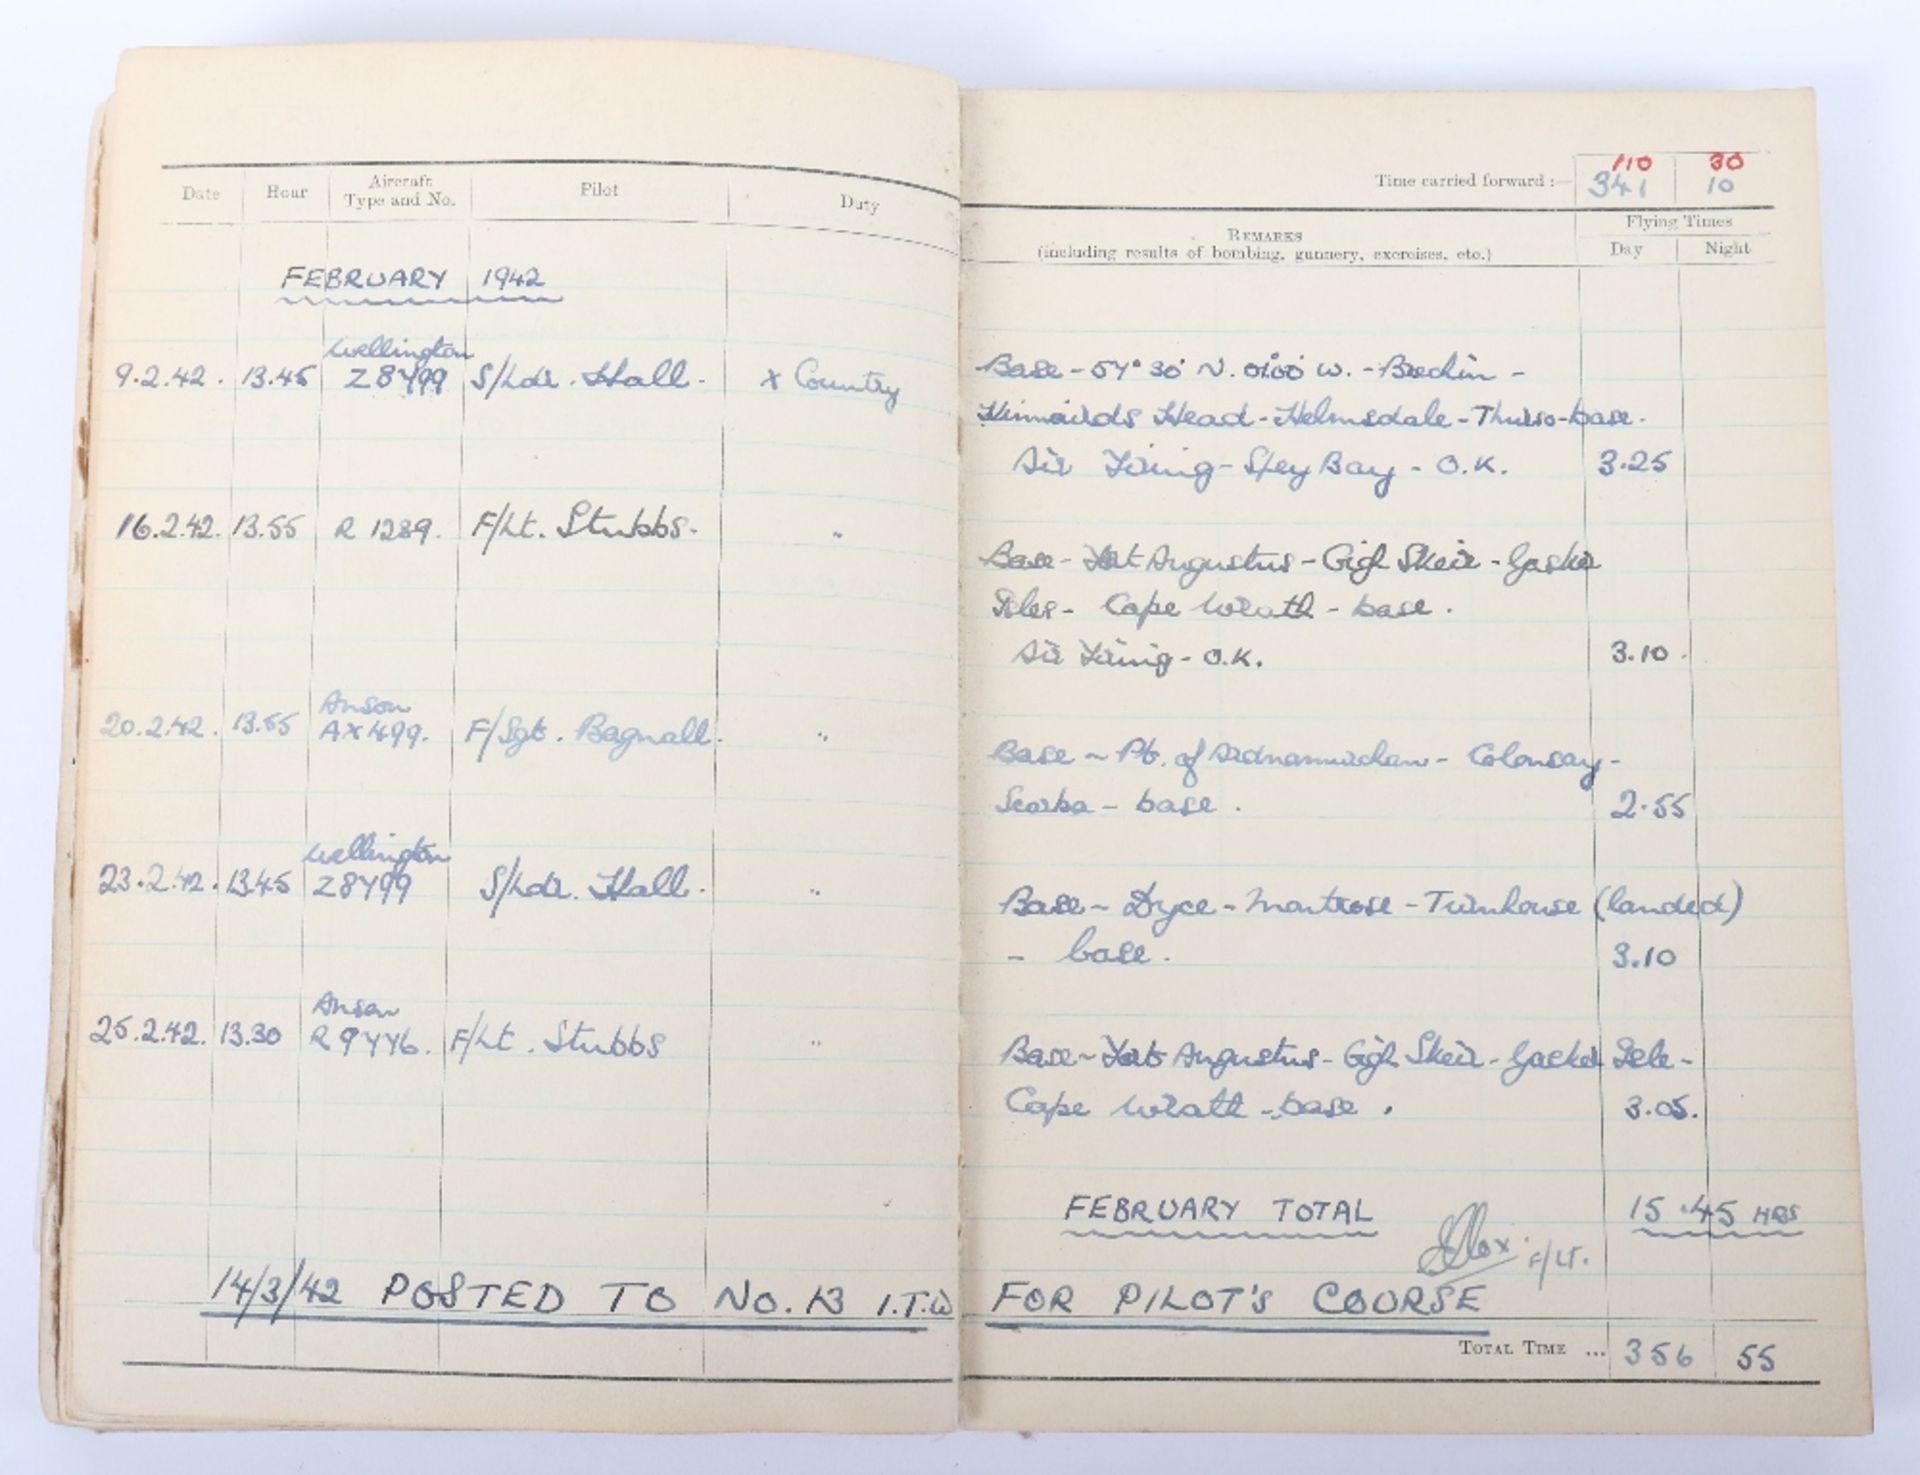 Time carried forward :— 110 30
341 10
Date Hour Aircraft Type and No. Pilot Duty
REMARKS
(including results of bombing, gunnery, exercises, etc.)
Flying Times
Day Night
FEBRUARY 1942
Wellington
9.2.42. 13.45 Z8799 S/Ldr. Hall. X Country
Base - 57° 30' N. 01°00' W. - Brechin -
Kinnairds Head - Helmsdale - Thurso - base.
Air Firing - Spey Bay - O.K. 3.25
16.2.42. 13.55 R 1289. F/Lt. Stubbs. "
Base - Fort Augustus - Eigh Skeir - Gasker
Isles - Cape Wrath - base.
Air Firing - O.K. 3.10.
Anson
20.2.42. 13.55 AX499. F/Sgt. Bagnall. "
Base - Pt. of Ardnamurchan - Colonsay -
Scarba - base. 2.55
Wellington
23.2.42. 13.45 Z8799 S/Ldr. Hall. "
Base - Dyce - Montrose - Turnhouse (landed)
- base. 3.10
Anson
25.2.42. 13.30 R 9776. F/Lt. Stubbs "
Base - Fort Augustus - Eigh Skeir - Gasker Isle -
Cape Wrath - base. 3.05.
FEBRUARY TOTAL 15.45 HRS
F/Lt.
14/3/42 POSTED TO No. 13 I.T.W FOR PILOT'S COURSE
TOTAL TIME ... 356 55